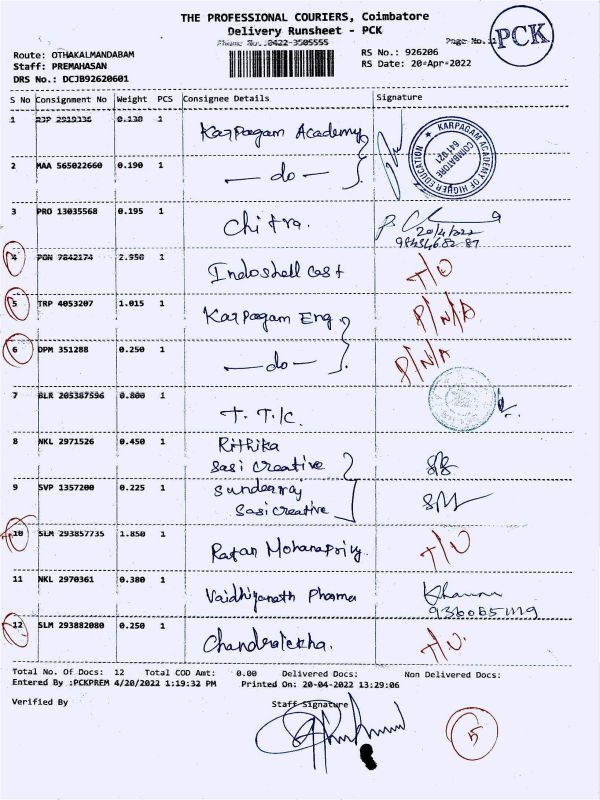 THE PROFESSIONAL COURIERS, Coimbatore
Delivery Runsheet - PCK
Phone No.:0422-3505555
Page No.:1
PCK
Route: OTHAKALMANDABAM
RS No.: 926206
Staff: PREMAHASAN
RS Date: 20-Apr-2022
DRS No.: DCJB92620601
S No Consignment No Weight PCS Consignee Details Signature
1 2919336 0.130 1 Karpagam Academy
KARPAGAM ACADEMY OF HIGHER EDUCATION
COIMBATORE
641 021
2 MAA 565022660 0.190 1 — do —
3 PRO 13035568 0.195 1 Chitra.
20/4/2022
4 PON 7842174 2.950 1 Indoshell Cast T/O
5 TRP 4053207 1.015 1 Karpagam Eng P/N/A
6 DPM 351288 0.250 1 — do — P/N/A
7 BLR 205387596 0.800 1 T.T.C.
8 NKL 2971526 0.450 1 Rithika
Sasi Creative
9 SVP 1357200 0.225 1
Sasi creative
10 SLM 293857735 1.850 1 Ratan
11 NKL 2970361 0.380 1 Vaidhiyanath Pharma
12 SLM 293882080 0.250 1 Chandralekha.
Total No. Of Docs: 12 Total COD Amt: 0.00 Delivered Docs: Non Delivered Docs:
Entered By :PCKPREM 4/20/2022 1:19:32 PM Printed On: 20-04-2022 13:29:06
Verified By Staff Signature
5